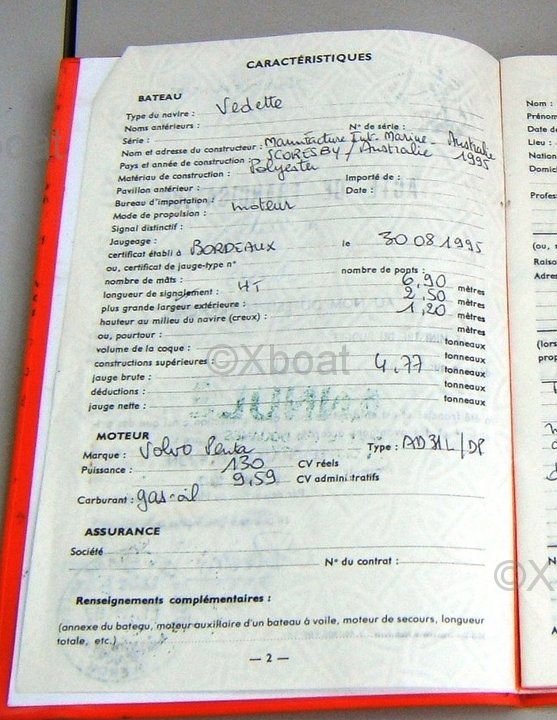 CARACTÉRISTIQUES
BATEAU
Type du navire : Vedette
Noms antérieurs :
Série : N° de série :
Nom et adresse du constructeur : Manufacture Int. Marine - Australie
Pays et année de construction : SCORESBY / Australie 1995
Matériau de construction : Polyester
Pavillon antérieur : Importé de :
Bureau d'importation : Date :
Mode de propulsion : moteur
Signal distinctif :
Jaugeage :
certificat établi à BORDEAUX le 30 08 1995
ou, certificat de jauge-type n°
nombre de mâts : nombre de ponts :
longueur de signalement : HT 6,90 mètres
plus grande largeur extérieure : 2,50 mètres
hauteur au milieu du navire (creux) : 1,20 mètres
ou, pourtour : mètres
volume de la coque : tonneaux
constructions supérieures : tonneaux
jauge brute : 4,77 tonneaux
déductions : tonneaux
jauge nette : tonneaux
MOTEUR
Marque : Volvo Penta Type : AD31L/DP
Puissance : 130 CV réels
9,59 CV administratifs
Carburant : gas-oil
ASSURANCE
Société
N° du contrat :
Renseignements complémentaires :
(annexe du bateau, moteur auxiliaire d'un bateau à voile, moteur de secours, longueur
totale, etc.)
— 2 —
©Xboat
Nom :
Prénom
Date
Lieu :
Nation
Domici
Profes
(ou,
Raiso
Adres
(lors
©X